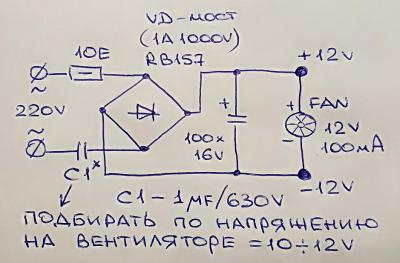 VD-МОСТ
(1A 1000V)
RB157
10E
+12V
~
220V
~
+
+
FAN
12V
100мA
-
100x
16V
C1*
-12V
C1 - 1MF/630V
ПОДБИРАТЬ ПО НАПРЯЖЕНИЮ
НА ВЕНТИЛЯТОРЕ = 10÷12V